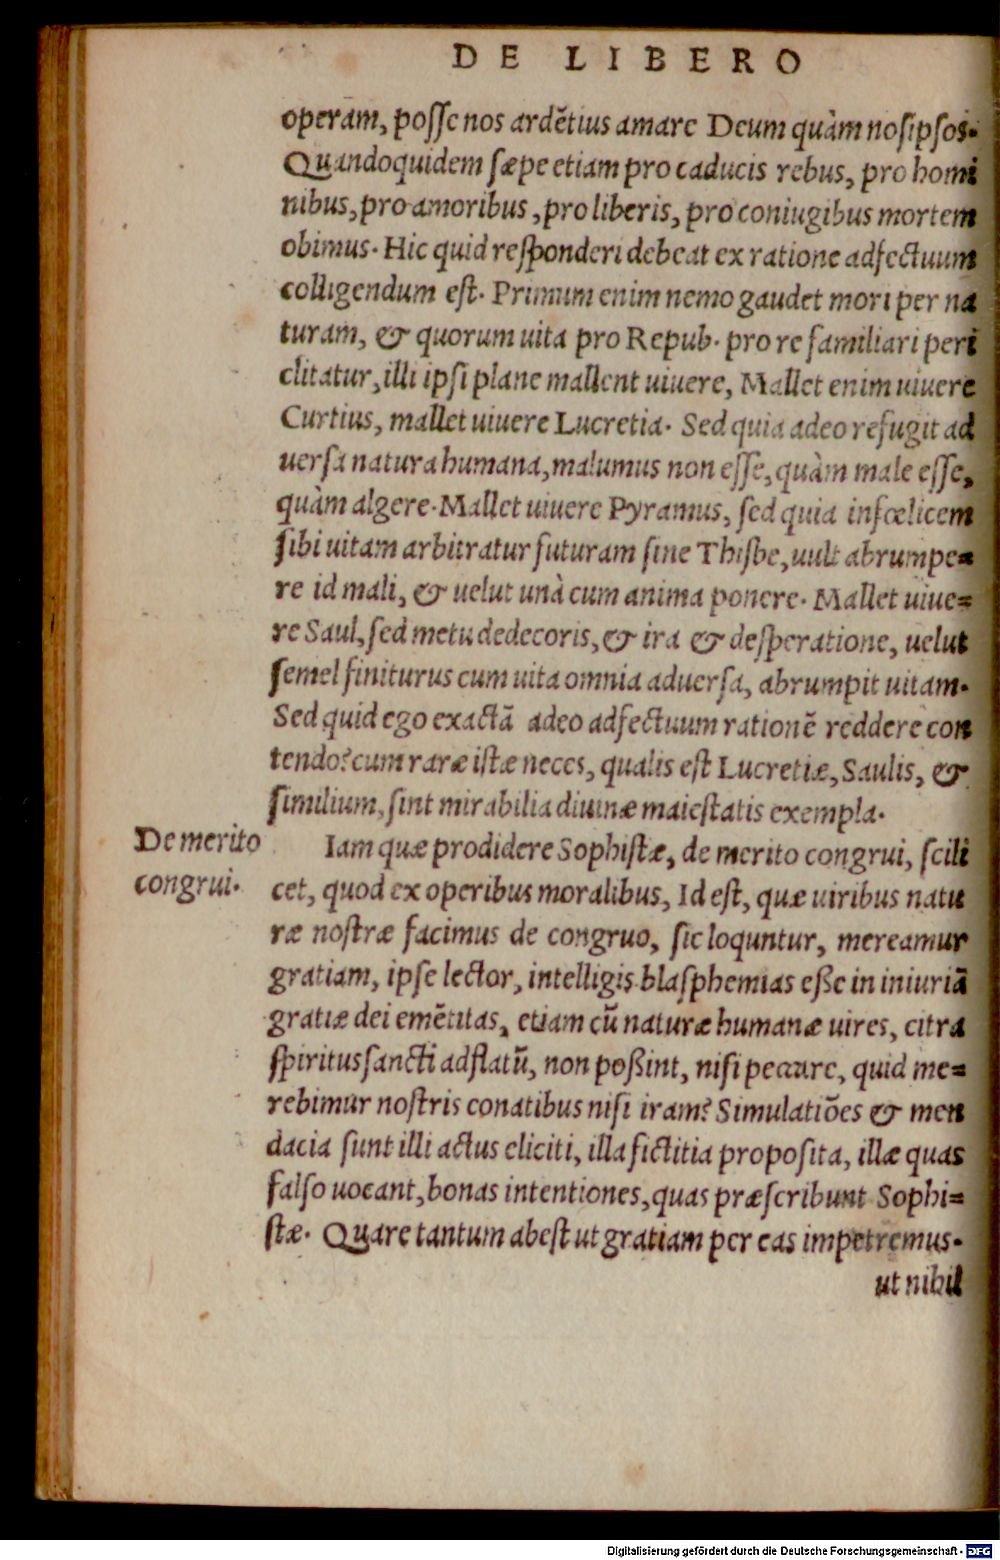 DE LIBERO
operam, posse nos ardẽtius amare Deum quàm nosipsos.
Quandoquidem sæpe etiam pro caducis rebus, pro homi
nibus, pro amoribus, pro liberis, pro coniugibus mortem
obimus. Hic quid responderi debeat ex ratione adfectuum
colligendum est. Primum enim nemo gaudet mori per na
turam, & quorum uita pro Repub. pro re familiari peri
clitatur, illi ipsi plane mallent uiuere, Mallet enim uiuere
Curtius, mallet uiuere Lucretia. Sed quia adeo refugit ad
uersa natura humana, malumus non esse, quàm male esse,
quàm algere. Mallet uiuere Pyramus, sed quia infœlicem
sibi uitam arbitratur futuram sine Thisbe, uult abrumpe=
re id mali, & uelut unà cum anima ponere. Mallet uiue=
re Saul, sed metu dedecoris, & ira & desperatione, uelut
semel finiturus cum uita omnia aduersa, abrumpit uitam.
Sed quid ego exactã adeo adfectuum rationẽ reddere con
tendo? cum raræ istæ neces, qualis est Lucretiæ, Saulis, &
similium, sint mirabilia diuinæ maiestatis exempla.
De merito
congrui.
Iam quæ prodidere Sophistæ, de merito congrui, scili
cet, quod ex operibus moralibus, Id est, quæ uiribus natu
ræ nostræ facimus de congruo, sic loquntur, mereamur
gratiam, ipse lector, intelligis blasphemias eße in iniuriã
gratiæ dei emẽtitas, etiam cũ naturæ humanæ uires, citra
spiritus sancti adflatũ, non poßint, nisi peccare, quid me=
rebimur nostris conatibus nisi iram? Simulatiões & men
dacia sunt illi actus eliciti, illa fictitia proposita, illæ quas
falso uocant, bonas intentiones, quas præscribunt Sophi=
stæ. Quare tantum abest ut gratiam per eas impetremus.
ut nihil
Digitalisierung gefördert durch die Deutsche Forschungsgemeinschaft - DFG